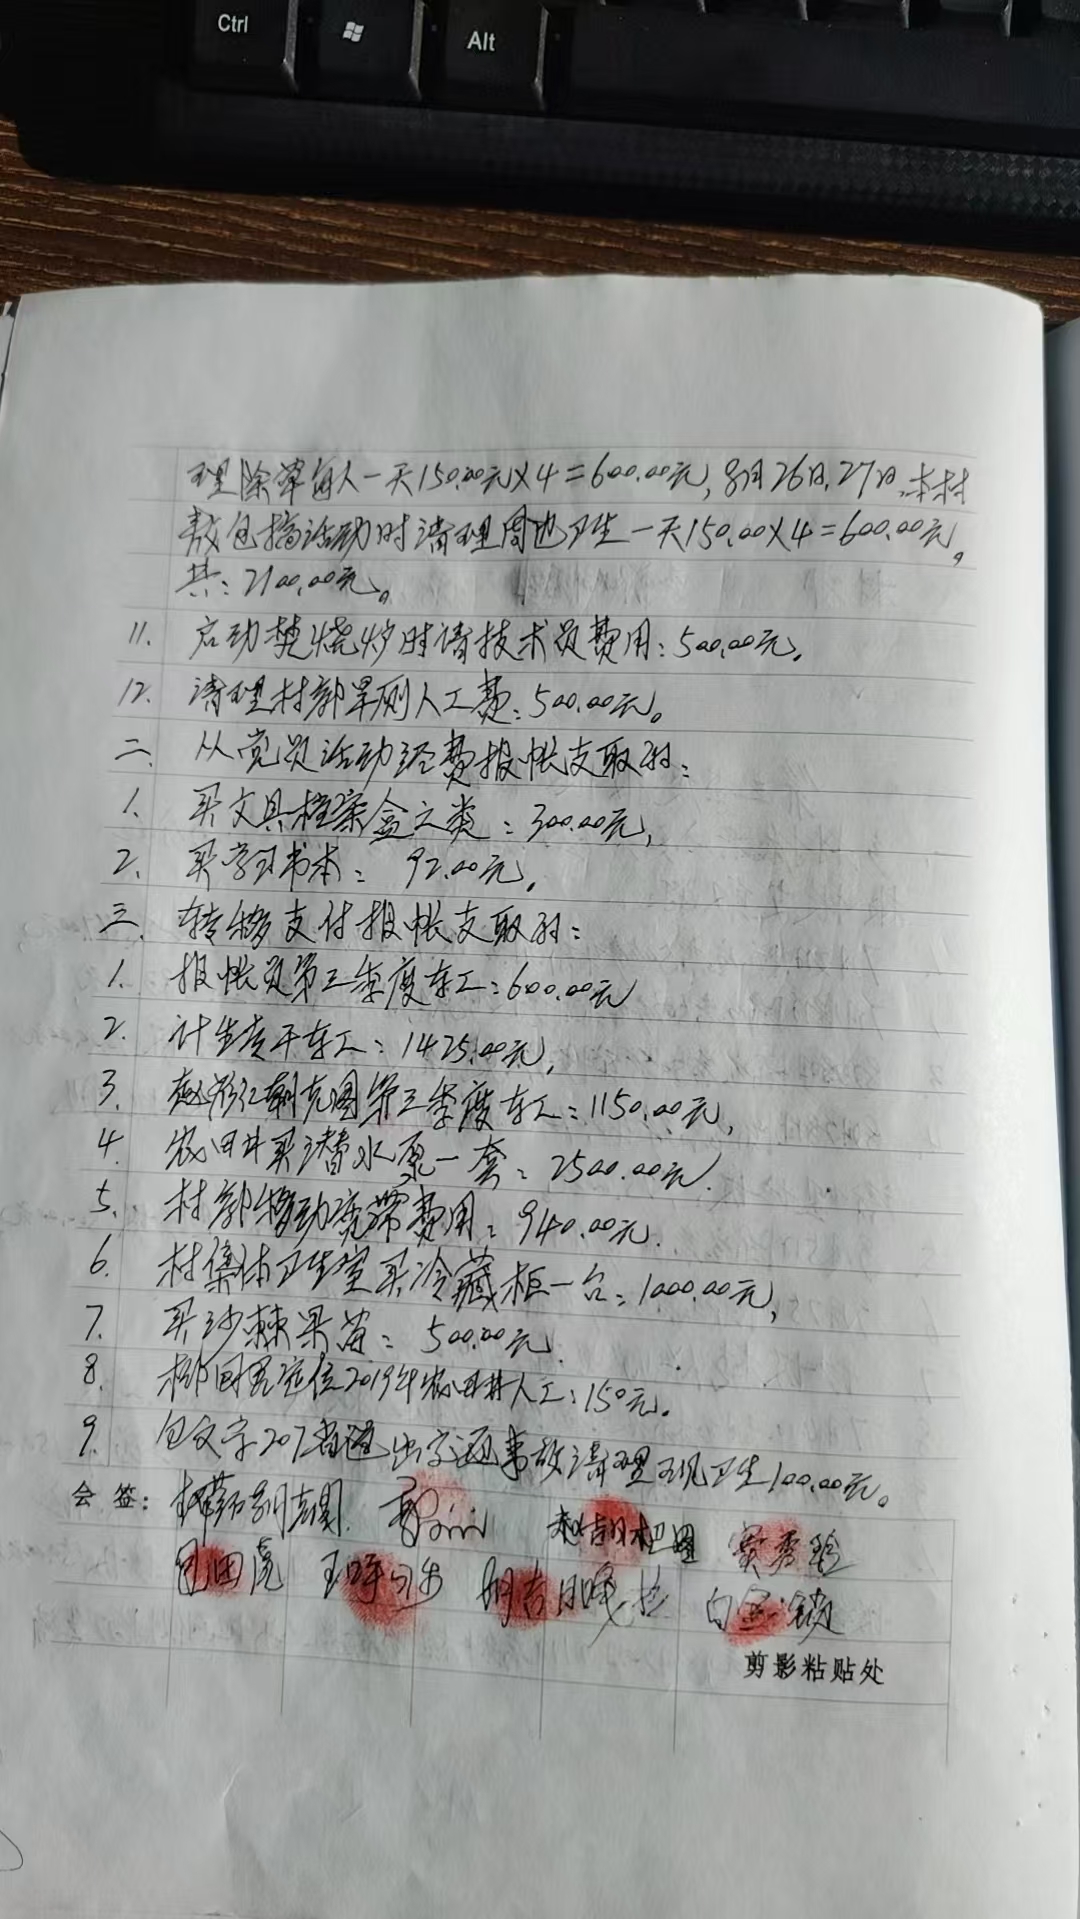 Ctrl
Alt
理除草每人一天150.00元×4=600.00元,8月26日,27日,本村
敖包搞活动时清理周边卫生一天150.00×4=600.00元。
共:2100.00元。
11. 启动焚烧炉时请技术员费用:500.00元。
12. 清理村部旱厕人工费:500.00元。
二、从党员活动经费报帐支取的:
1. 买文具档案盒之类:300.00元,
2. 买学习书本:92.00元。
三、转移支付报帐支取的:
1. 报帐员第三季度车工:600.00元
2. 计生专干车工:1425.00元,
3. 朝克图第三季度车工:1150.00元,
4. 农田井买潜水泵一套:2500.00元.
5. 村部移动宽带费用:940.00元.
6. 村集体卫生室买冷藏柜一台:1000.00元,
7. 买沙棘果苗:500.00元.
8. 2019年农田井人工:150元。
9. 包文字207省道出交通事故清理现卫生100.00元。
会签:
包田虎
白金锁
剪影粘贴处